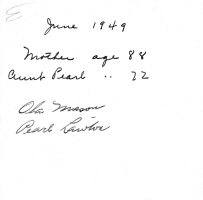 June 1949
Mother age 88
Aunt Pearl .. 72
Ola Mason
Pearl